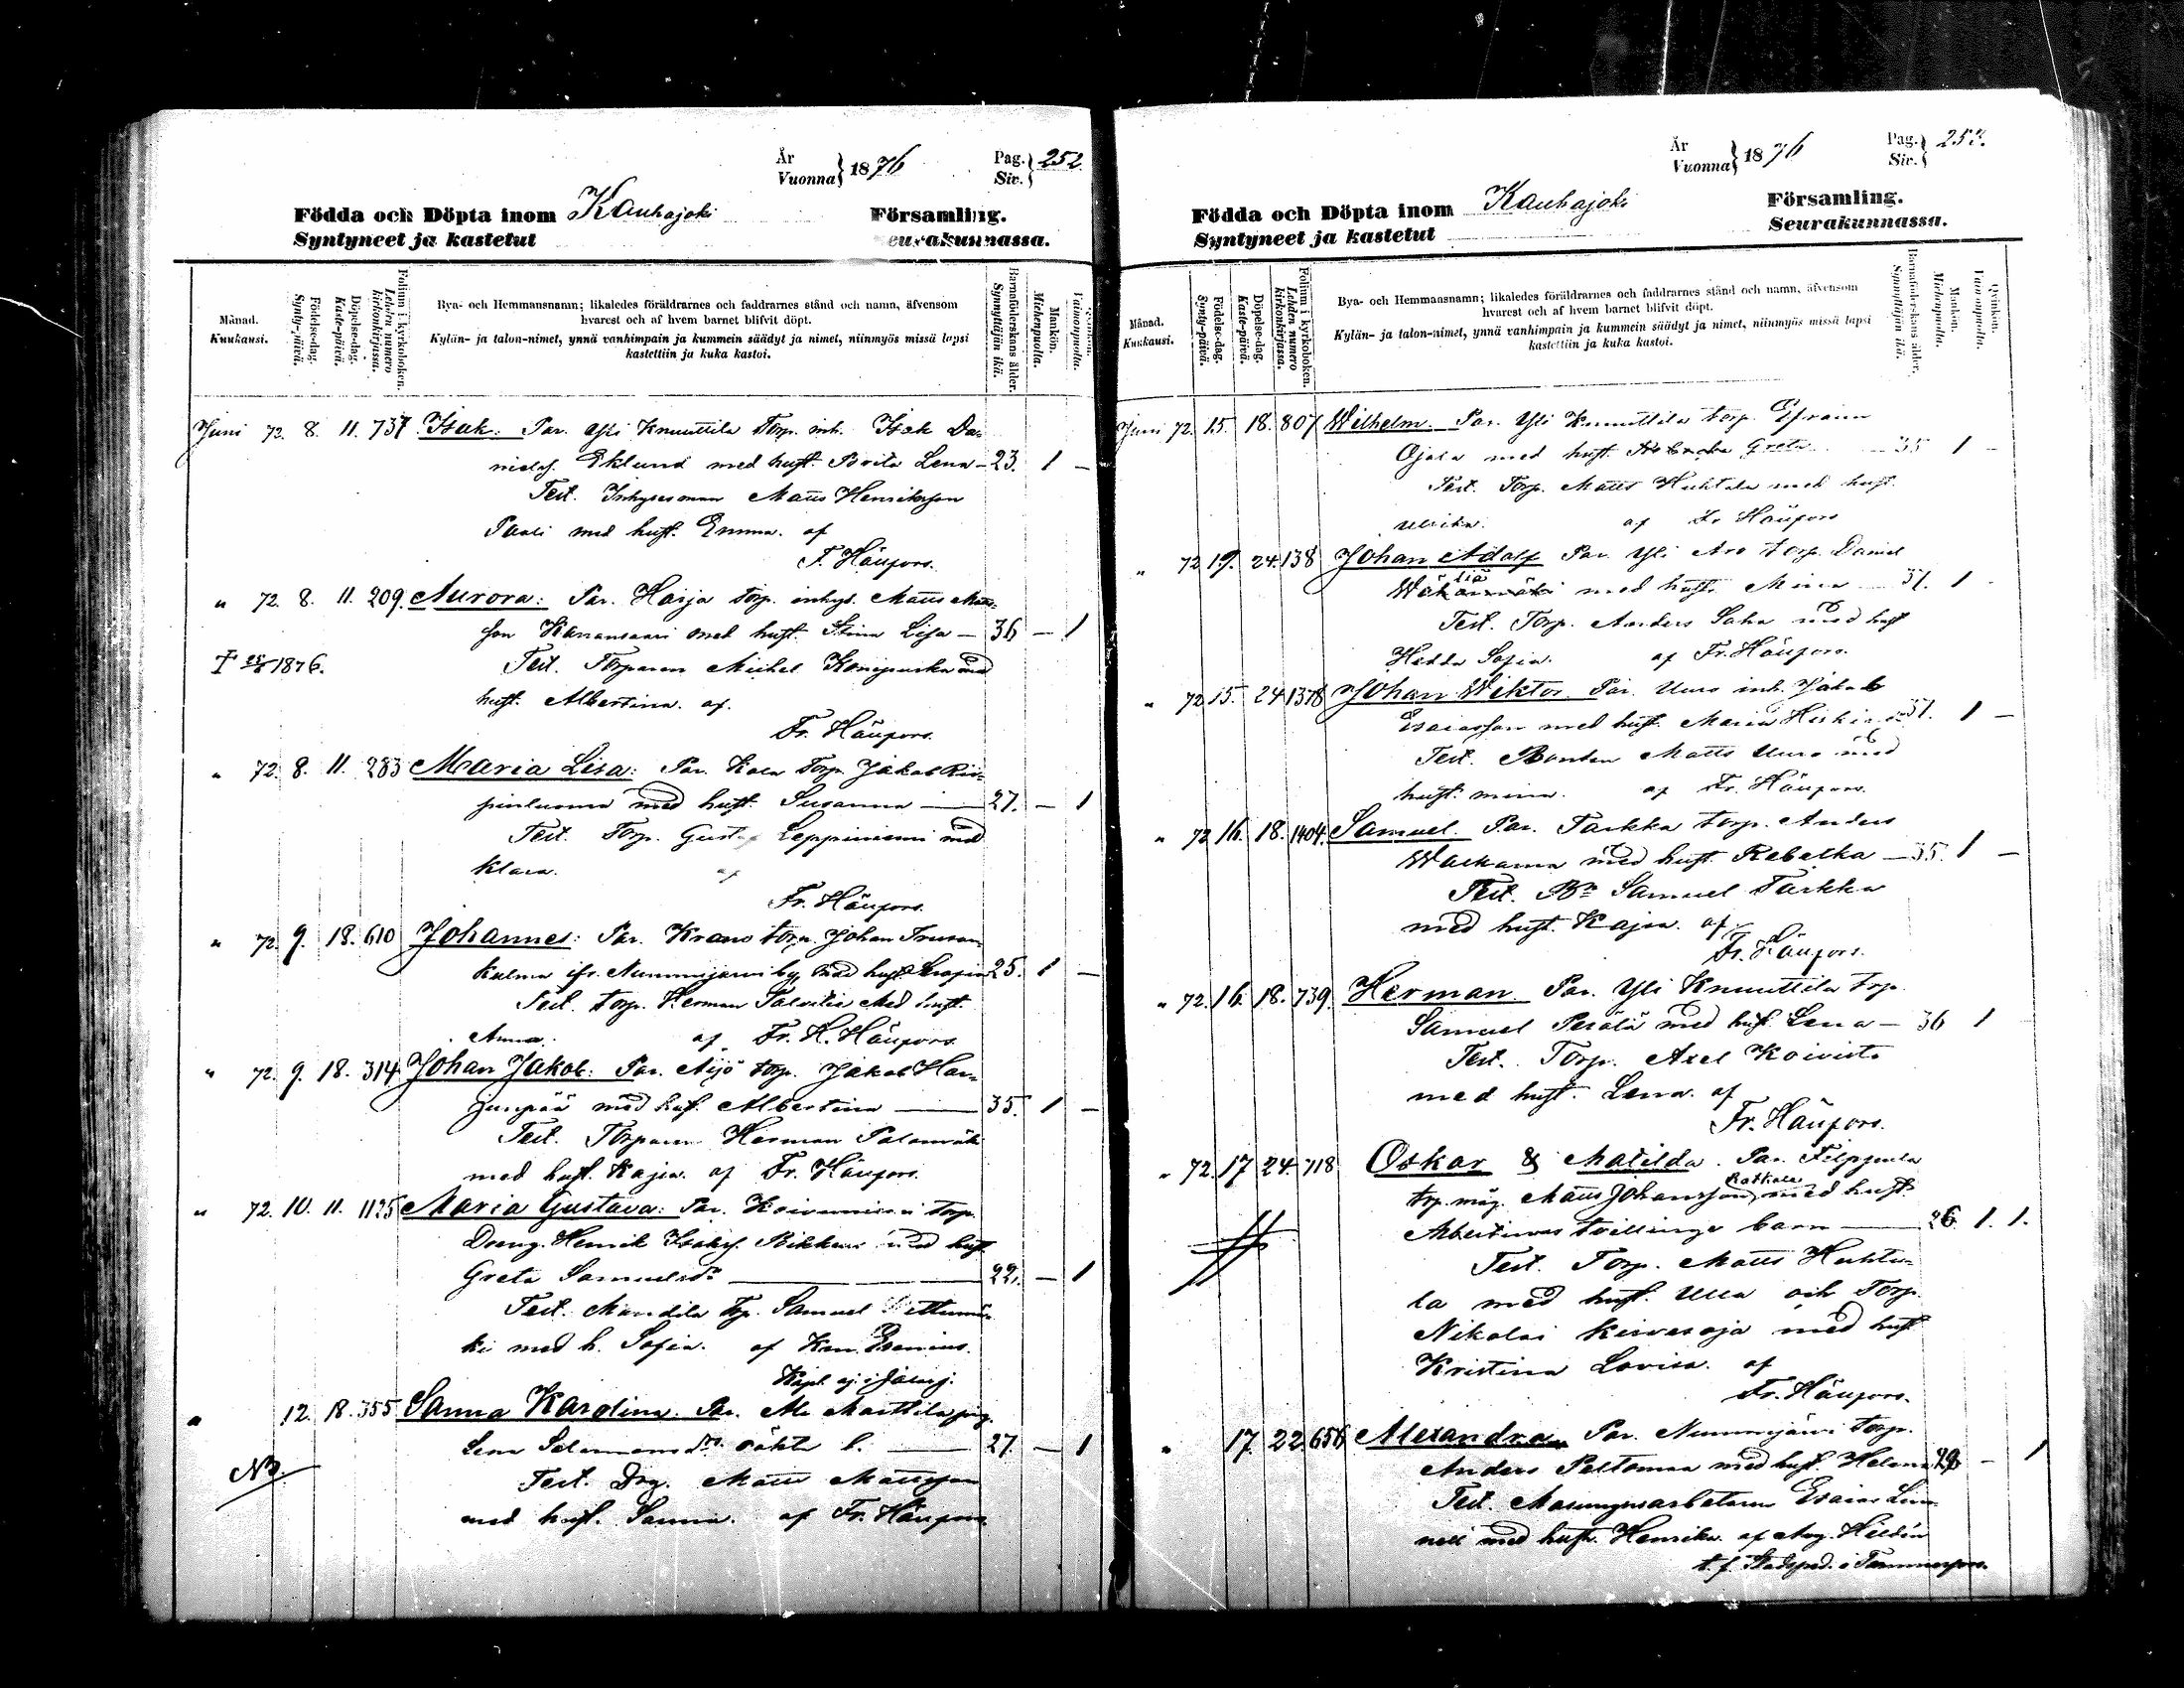 År
Vuonna } 1876
Pag.
Siv. } 252
Födda och Döpta inom Kauhajoki Församling.
Syntyneet ja kastetut Seurakunnassa.
Månad.
Kuukausi.
Födelse-dag.
Synty-päivä.
Döpelse-dag.
Kaste-päivä.
Folium i kyrkoboken.
Lehden numero kirkonkirjassa.
Bya- och Hemmansnamn; likaledes föräldrarnes och faddrarnes stånd och namn, äfvensom
hvarest och af hvem barnet blifvit döpt.
Kylän- ja talon-nimet, ynnä vanhimpain ja kummein säädyt ja nimet, niinmyös missä lapsi
kastettiin ja kuka kastoi.
Barnaföderskans ålder.
Synnyttäjän ikä.
Mankön.
Miehenpuolta.
Qvinkön.
Vaimonpuolta.
Juni 72. 8. 11. 737 Isak: Par. Yli Knuuttila Torp. inh. Isak Da-
nielss. Eklund med hust. Brita Lena – 23. 1 –
Test. Inhysesman Matts Henriksson
Pauli med hust. Emma. af
F. Häyfors.
" 72. 8. 11. 209. Aurora: Par. Harja torp. inhys. Matts Matts-
son Kananmaari med hust. Stina Lisa – 36 – 1
1876. Test. Torparen Michel med
hust. Albertina. af.
Fr. Häyfors.
" 72. 8. 11. 283 Maria Lisa: Par. Koha Torp. Jakob
med hust. Susanna – 27. – 1
Test. Torp. Gustaf Leppiniemi med
Klara. af
Fr. Häyfors.
" 72. 9. 18. 610 Johannes: Par. Krans torp. Johan
Nummijärvi by, med hust. Serafia 25. 1 –
Test. torp. Herman Salvitie med hust.
Anna. af Fr. H. Häyfors.
" 72. 9. 18. 314 Johan Jakob: Par. Äijö torp. Jakob Har-
junpää med hust. Albertina – 35. 1 –
Test. Torparen Herman Palomäki
med hust. Kajsa. af Fr. Häyfors.
" 72. 10. 11. 1125 Maria Gustava: Par. Koivuniemi torp.
Dreng. Henrik Isakss. med hust
Greta Samuelsdr – 22. – 1
Test. Mandila trp. Samuel
ki med h. Sofia. af
Kapl. i Jalasj.
" 12. 18. 355 Sanna Karolina. Par. Ala Marttila pig.
Lena Salomonsdrs oäkta b. – 27. – 1
NB. Test. Drg. Matts Mattsson
med hust. Sanna. af Fr. Häyfors.
År
Vuonna } 1876
Pag.
Siv. } 253.
Födda och Döpta inom Kauhajoki Församling.
Syntyneet ja kastetut Seurakunnassa.
Månad.
Kuukausi.
Födelse-dag.
Synty-päivä.
Döpelse-dag.
Kaste-päivä.
Folium i kyrkoboken.
Lehden numero kirkonkirjassa.
Bya- och Hemmansnamn; likaledes föräldrarnes och faddrarnes stånd och namn, äfvensom
hvarest och af hvem barnet blifvit döpt.
Kylän- ja talon-nimet, ynnä vanhimpain ja kummein säädyt ja nimet, niinmyös missä lapsi
kastettiin ja kuka kastoi.
Barnaföderskans ålder.
Synnyttäjän ikä.
Mankön.
Miehenpuolta.
Qvinkön.
Vaimonpuolta.
Juni 72. 15. 18. 807 Wilhelm. Par. Yli Knuuttila torp. Efraim
Ojala med hust. Greta 35 1 –
Test. Torp. Matts Huhtala med hust.
Ulrika. af Fr. Häyfors
" 72 19. 24. 138 Johan Adolf Par. Yli Aro torp. Daniel
med hust. Mina – 37. 1 –
Test. Torp. Anders Saha med hust
Hedda Sofia. af Fr. Häyfors.
" 72 15. 24 1378 Johan Wiktor. Par. Uuro inh. Jakob
Esaiasson med hust. Maria 37. 1 –
Test. Bonden Matts Uuro med
hust. mina. af Fr. Häyfors.
" 72 16. 18. 1404. Samuel. Par. Tarkka torp. Anders
Walkama med hust. Rebekka – 35. 1 –
Test. Bn Samuel Tarkka
med hust. Kajsa. af
Fr. Häyfors.
" 72. 16. 18. 739. Herman. Par. Yli Knuuttila trp.
Samuel Perälä med hust. Lena – 36 1
Test. Torp. Axel Koivisto
med hust. Lena. af
Fr. Häyfors.
" 72. 17 24 718 Oskar & Matilda. Par. Filppula
trp. måg. Matts Johansson med hust
Albertinas tvillinge barn – 26. 1. 1.
Test. Torp. Matts Huhta-
la med hust. Ulla och Torp.
Nikolai Kiviesoja med hust
Kristina Lovisa. af
Fr. Häyfors.
" 17. 22 656 Alexandra Par. Nummijärvi torp.
Anders Peltomaa med hust. Helena 29 – 1
Test. Masungnsarbetaren Esaias Lin-
nell med hust. Henrika. af Aug. Hildén
t.f. Stadspred. i Tammerfors.